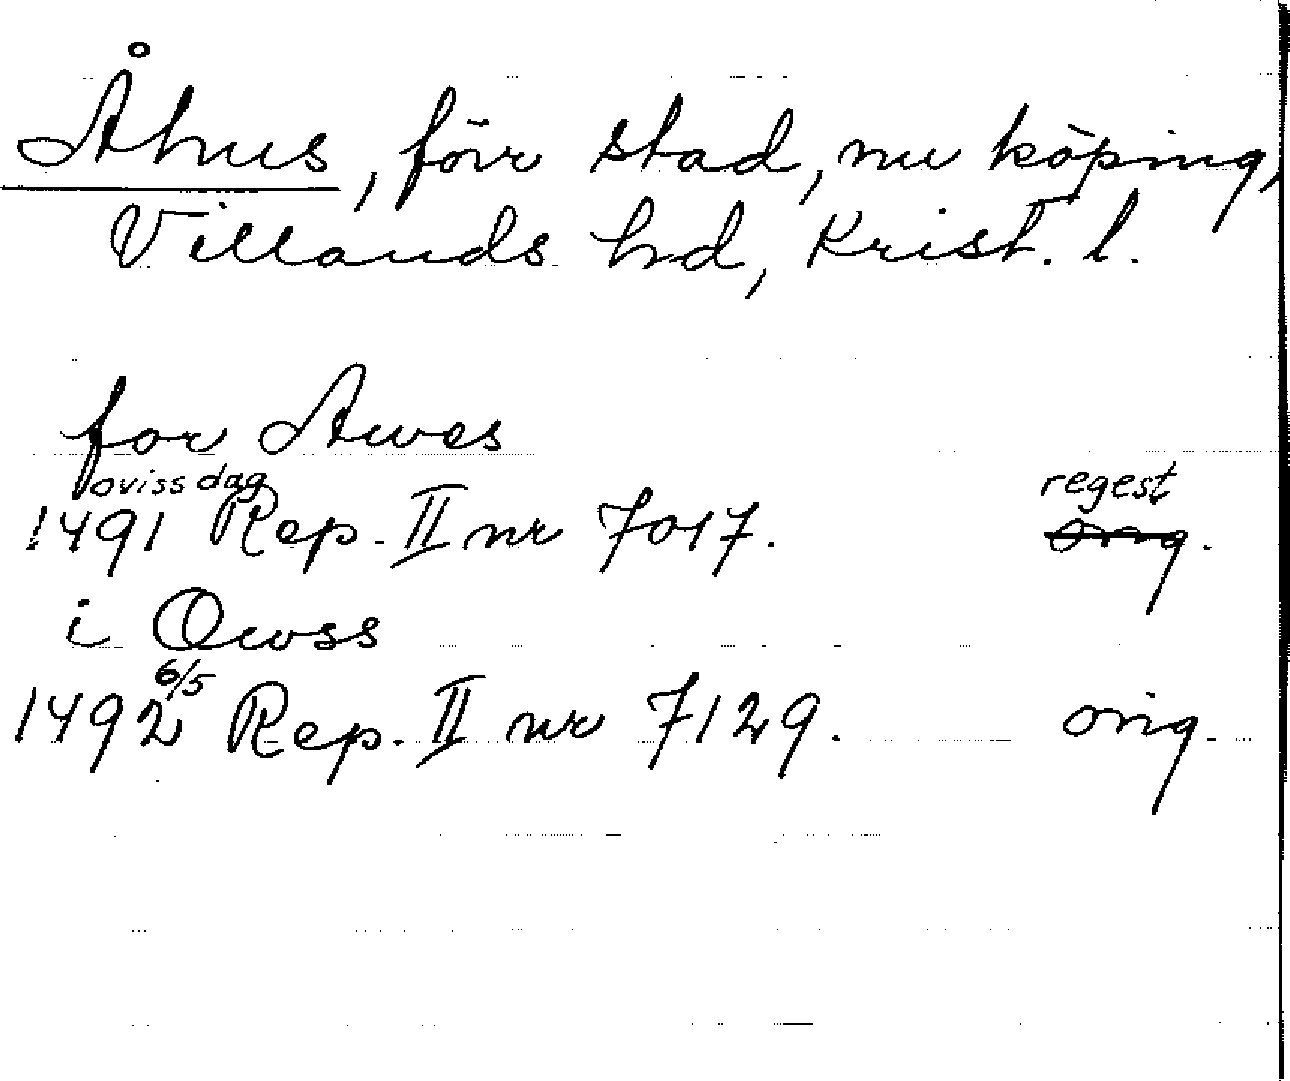 Åhus, förr stad, nu köping,
Villands hd, Krist. l.
for Awes
oviss dag regest
1491 Rep. II nr 7017. orig.
i Owss
6/5
1492 Rep. II nr 7129. orig.